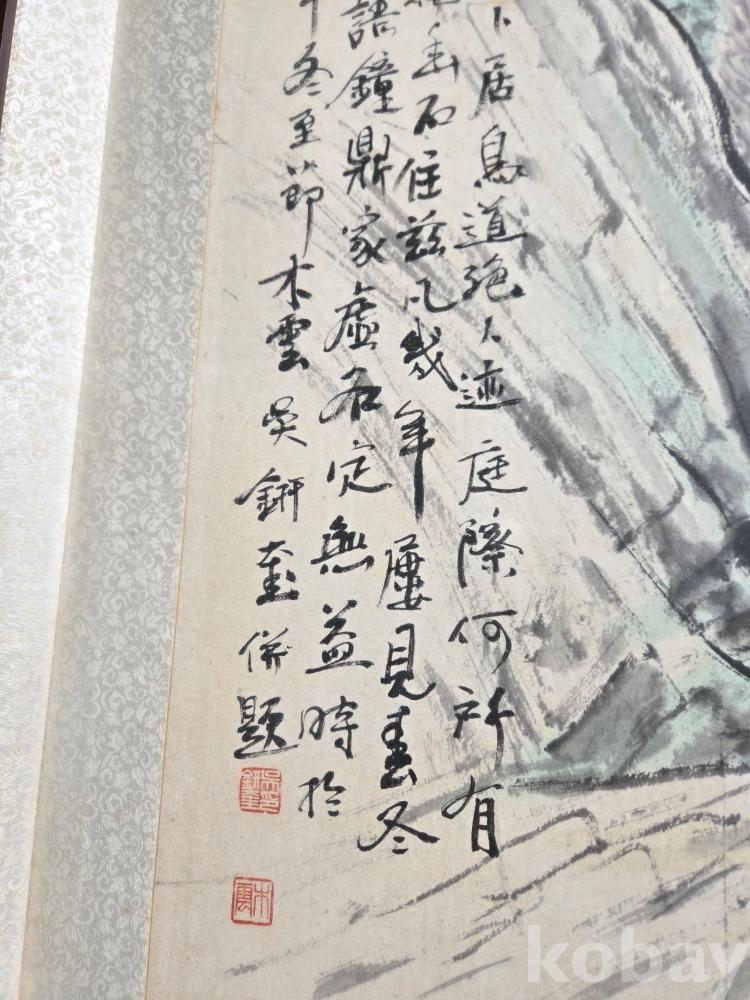 卜居鳥道絶人迹庭際何所有
幽石住玆凡幾年屢見春冬
語鐘鼎家虛名定無益時於
冬至節木雲吳銒奎併題
木雲
kobay